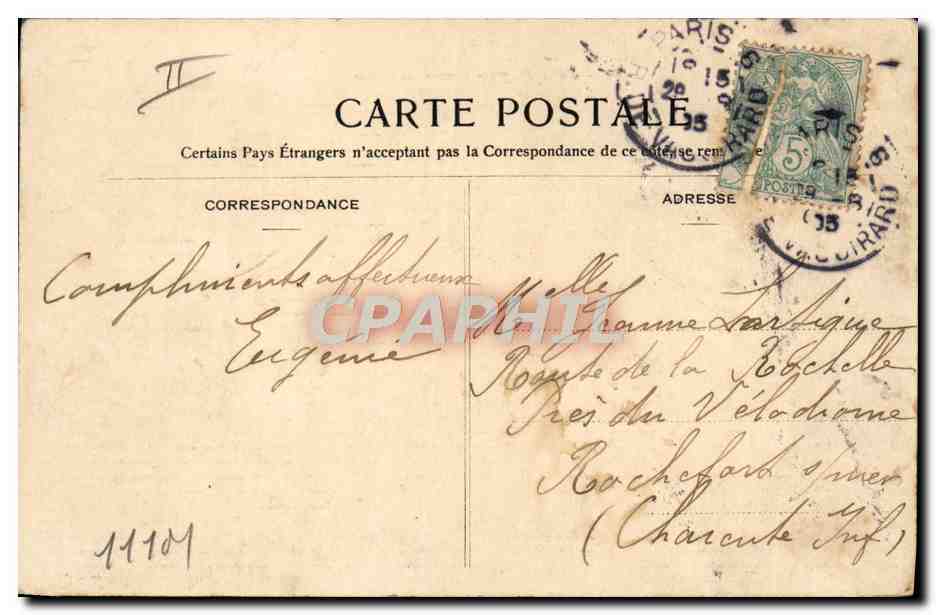 II
CARTE POSTALE
Certains Pays Étrangers n'acceptant pas la Correspondance de ce côté, se ren
CORRESPONDANCE
ADRESSE
PARIS
15
VAUGIRARD
5c
POSTES
Compliments affectueux
Eugenie
CPAPHIL
Melles Jeanne Lartigue
Route de la Rochelle
Près du Vélodrome
Rochefort s/mer
(Charente Inf)
11101